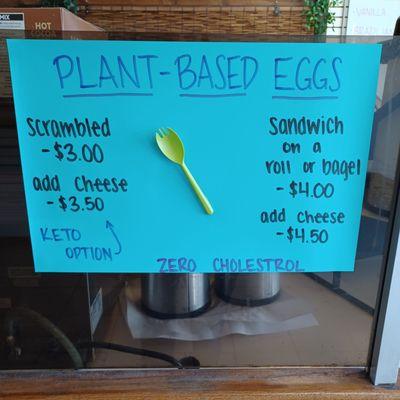 MIX
HOT
VANILLA
PLANT-BASED EGGS
scrambled
- $3.00
add cheese
- $3.50
KETO
OPTION
Sandwich
on a
roll or bagel
- $4.00
add cheese
- $4.50
ZERO CHOLESTROL